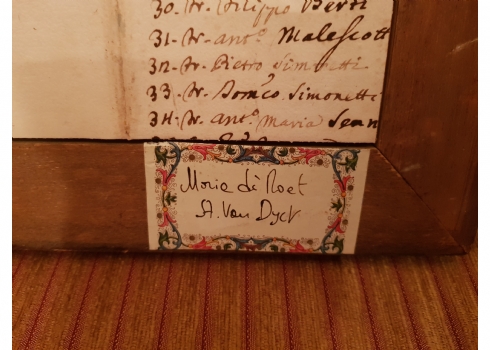 30. Sr. Filippo Berti
31. Sr. antº. Malescott
32. Sr. Pietro Simonetti
33. Sr. Domco. Simonetti
34. Sr. antº. maria
Maria di Roet
A. Van Dyck